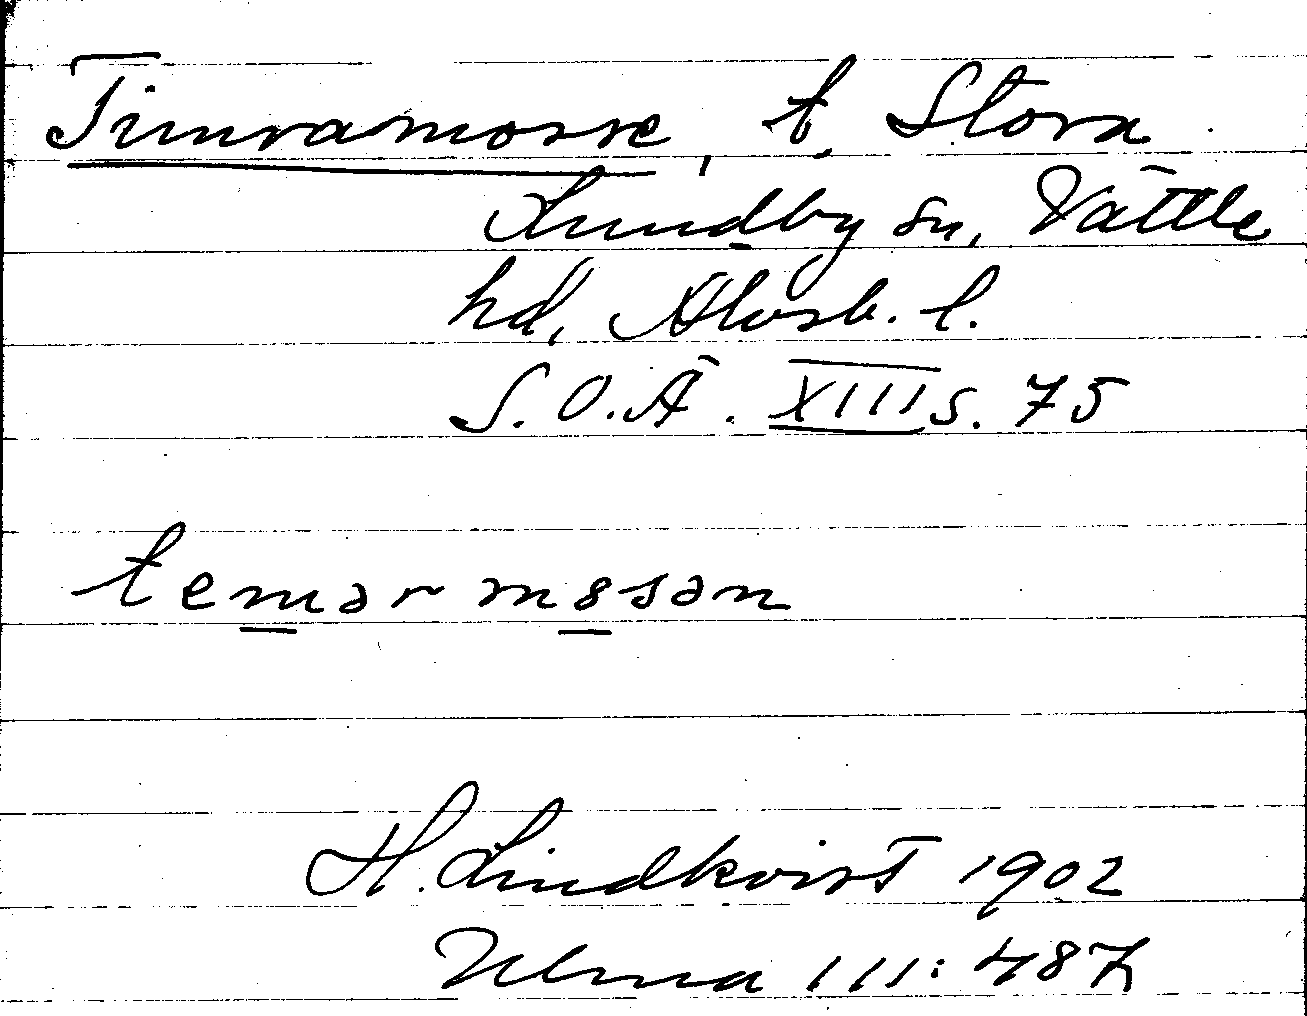 Timramosse, t. Stora
Lundby sn, Vättle
hd, Älvsb. l.
S.O.Ä. XIII s. 75
temər m8sən
H. Lindkvist 1902
Ulma 111:487